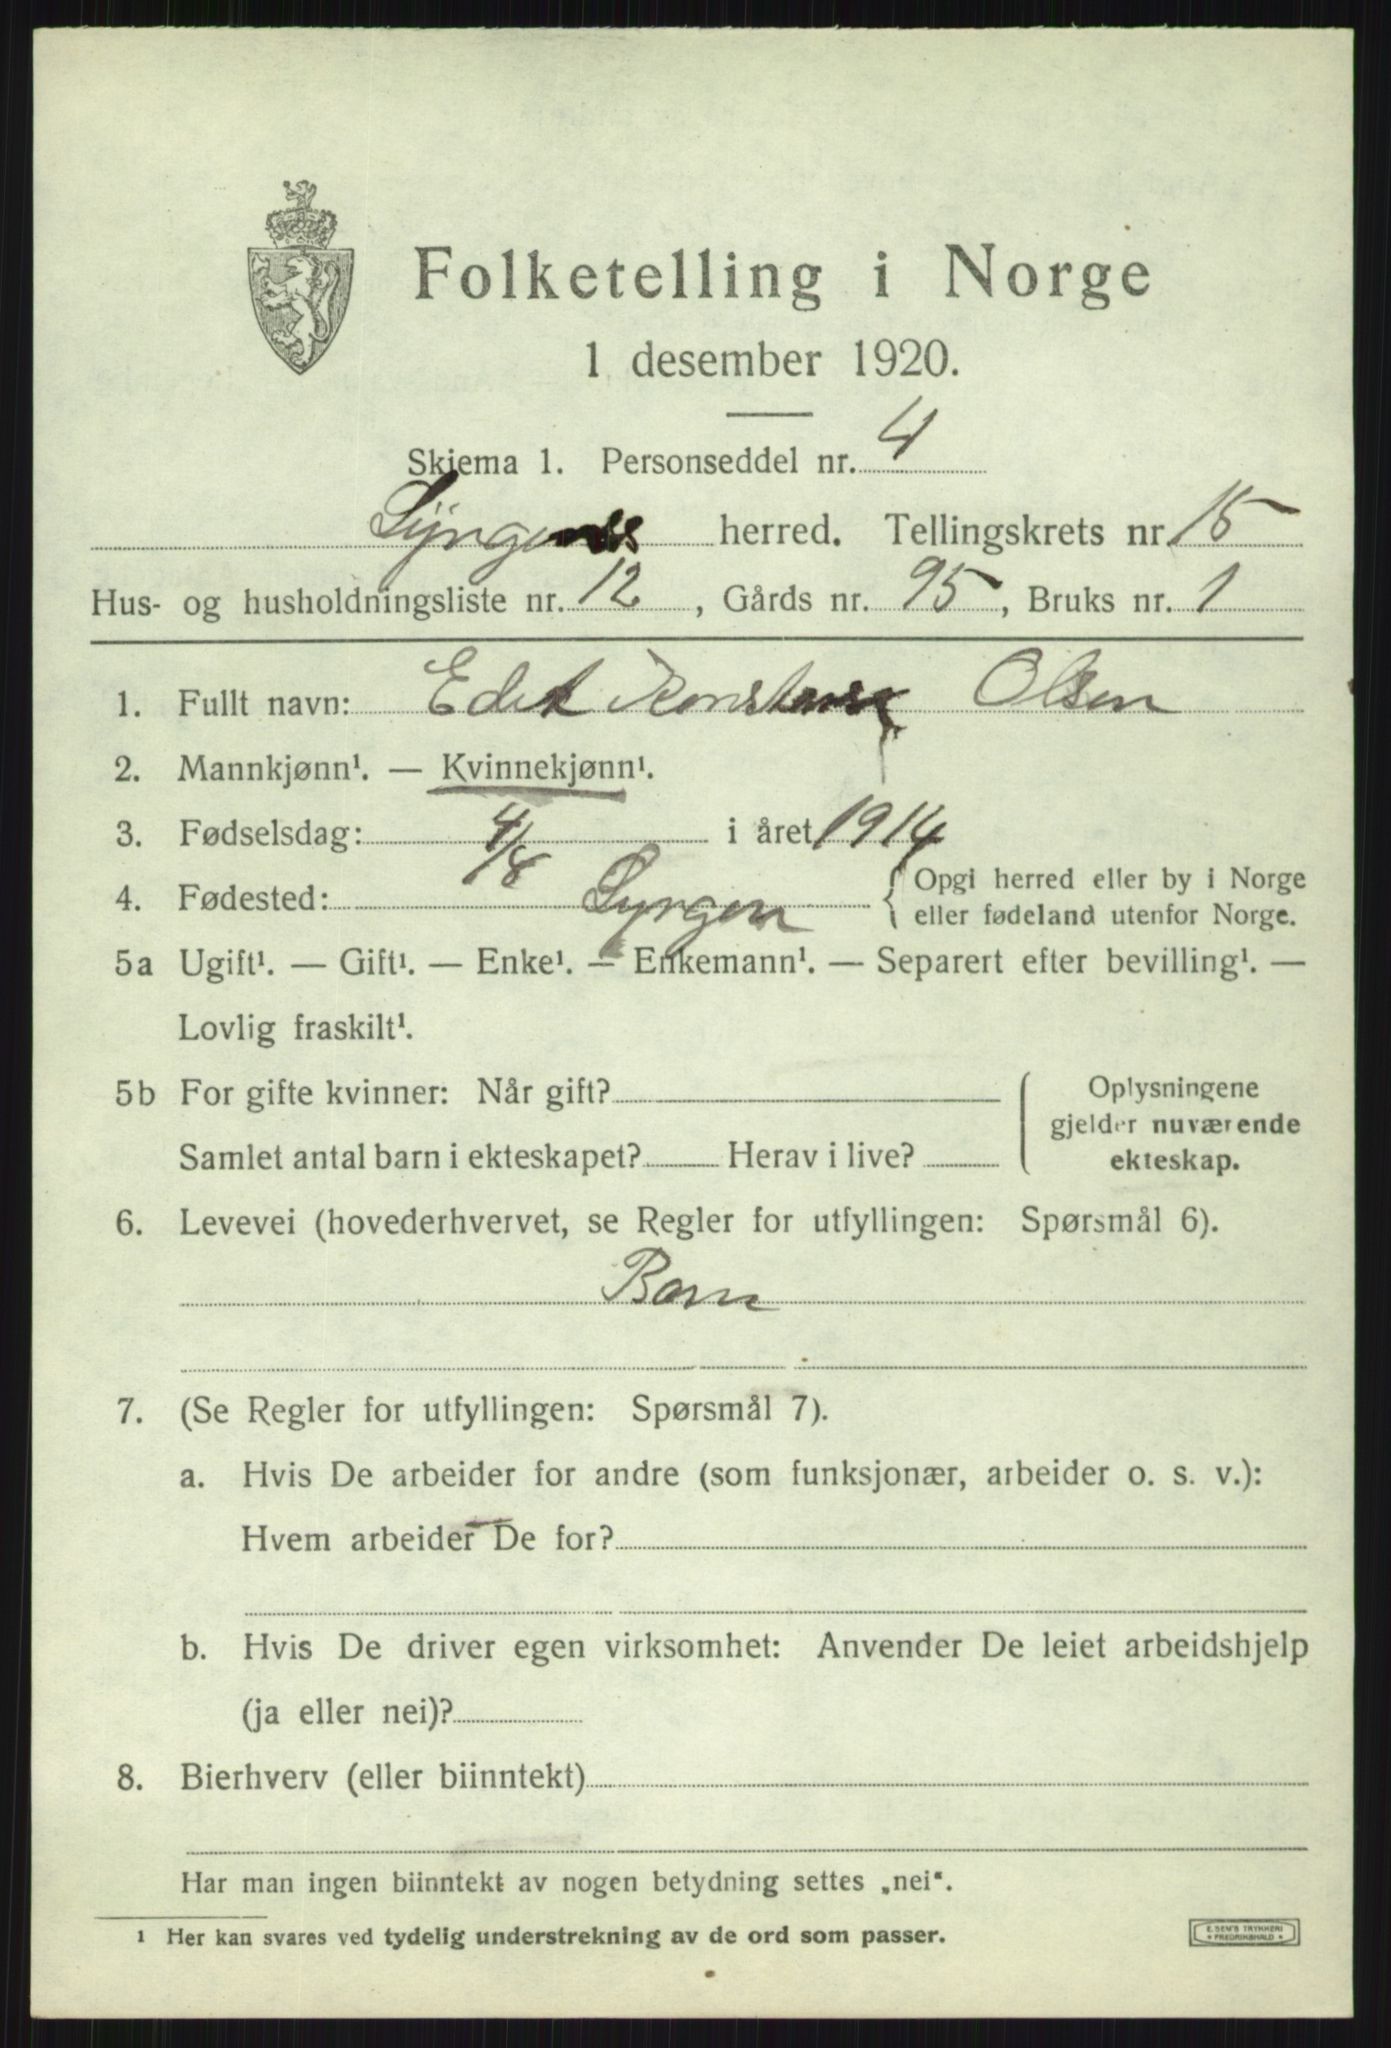 Folketelling i Norge
1 desember 1920.
Skjema 1. Personseddel nr. 4
herred. Tellingskrets nr. 15
Hus- og husholdningsliste nr. 12, Gårds nr. 95, Bruks nr. 1
1. Fullt navn: Edit Olsen
2. Mannkjønn¹. — Kvinnekjønn¹.
3. Fødselsdag: 4/8 i året 1914
4. Fødested: Lyngen { Opgi herred eller by i Norge
eller fødeland utenfor Norge.
5a Ugift¹. — Gift¹. — Enke¹. — Enkemann¹. — Separert efter bevilling¹. —
Lovlig fraskilt¹.
5b For gifte kvinner: Når gift?
Samlet antal barn i ekteskapet? Herav i live?
Oplysningene
gjelder nuværende
ekteskap.
6. Levevei (hovederhvervet, se Regler for utfyllingen: Spørsmål 6).
Barn
7. (Se Regler for utfyllingen: Spørsmål 7).
a. Hvis De arbeider for andre (som funksjonær, arbeider o. s. v.):
Hvem arbeider De for?
b. Hvis De driver egen virksomhet: Anvender De leiet arbeidshjelp
(ja eller nei)?
8. Bierhverv (eller biinntekt)
Har man ingen biinntekt av nogen betydning settes „nei“.
¹ Her kan svares ved tydelig understrekning av de ord som passer.
E. SEM'S TRYKKERI
* FREDRIKSHALD *